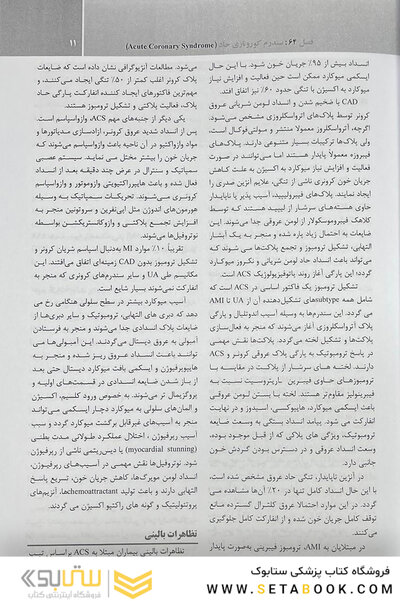 فصل ۶۴: سندرم کرونری حاد (Acute Coronary Syndrome)
۱۱
انسداد بیش از ۹۵٪ جریان خون شود. با این حال
ایسکمی میوکارد ممکن است حین فعالیت و افزایش نیاز
میوکارد به اکسیژن با تنگی حدود ۶۰٪ نیز اتفاق افتد.
CAD با ضخیم شدن و انسداد لومن شریانی عروق
کرونر توسط پلاک‌های آترواسکلروزی مشخص می‌شود.
اگرچه، آترواسکلروز معمولا منتشر و مولتی‌فوکال است،
ولی پلاک‌ها ترکیبات بسیار متنوعی دارند. پلاک‌های
فیبروزه معمولاً پایدار هستند اما می‌توانند در صورت
فعالیت و افزایش نیاز میوکارد به اکسیژن به علت کاهش
جریان خون کرونری ناشی از تنگی، علایم آنژین صدری را
ایجاد نمایند. پلاک‌های فیبرولیپید، آسیب پذیر یا ناپایدار
حاوی هسته‌های سرشار از لیپید هستند که توسط
کلاهک فیبروموسکولار از لومن عروقی جدا می‌شوند. این
ضایعات به احتمال زیاد پاره شده و منجر به یک آبشار
التهابی، تشکیل ترومبوز و تجمع پلاکت‌ها می شوند که
می‌تواند باعث انسداد حاد لومن شریانی و نکروز میوکارد
گردد؛ این پارگی آغاز روند پاتوفیزیولوژیک ACS است.
تشکیل ترومبوز یک فاکتور اساسی در ACS است که
شامل همه subtypeهای تشکیل‌دهنده آن از UA تا AMI
می گردد، این سندرم‌ها به وسیله آسیب اندوتلیال و پارگی
پلاک آترواسکلروزی آغاز می‌شوند که منجر به فعال‌سازی
پلاکت‌ها و تشکیل لخته می گردد. پلاکت‌ها نقش مهمی
در پاسخ ترومبوتیک به پارگی پلاک عروقی کرونر و ACS
دارند. لخته های سرشار از پلاکت در مقایسه با
ترومبوزهای حاوی فیبرین باریتروسیت نسبت به
فیبرینولیز مقاوم‌تر هستند. لخته با بستن لومن عروقی
باعث ایسکمی میوکارد، هیپوکسی، اسیدوز و در نهایت
انفارکت می شود. پیامد انسداد بستگی به وسعت ضایعه
ترومبوتیک، ویژگی های پلاکی که از قبل موجود بوده،
وسعت انسداد عروقی و در دسترس بودن گردش خون
جانبی دارد.
در آنژین ناپایدار، تنگی حاد عروق شایع است،
با این حال انسداد کامل تنها در ۲۰٪ آن‌ها مشاهده می
گردد. در این موارد احتمالا عروق کلترال گسترده مانع
توقف کامل جریان خون شده و از انفارکت کامل جلوگیری
می کنند.
در مبتلایان به AMI، ترومبوز فیبرینی به‌صورت پایدار
می‌شود. مطالعات آنژیوگرافی نشان داده است که ضایعات
پلاک کرونر اغلب کمتر از ۵۰٪ تنگی ایجاد می‌کنند، و
مهم‌ترین فاکتورهای ایجاد کننده انفارکت پارگی حاد
پلاک، فعالیت پلاکتی و تشکیل ترومبوز هستند.
یکی دیگر از جنبه‌های مهم ACS، وازواسپاسم است.
پس از انسداد شدید عروق کرونر، آزادسازی مدیاتورها و
مواد وازواکتیو در آن ناحیه باعث وازواسپاسم می‌شوند که
جریان خون را بیشتر مختل می نمایند. سیستم عصبی
سمپاتیک و سنترال در عرض چند دقیقه بعد از انسداد
فعال شده و باعث هایپراکتیویتی وازوموتور و وازواسپاسم
کرونری می‌شوند. تحریکات سمپاتیک به وسیله
هورمون‌های اندوژن مثل اپی‌نفرین و سروتونین منجر به
افزایش تجمع پلاکتی و وازوکانستریکشن بواسطه
نوتروفیل‌ها می‌شوند.
تقریباً ۱۰٪ موارد MI به‌دنبال اسپاسم شریان کرونر و
تشکیل ترومبوز بدون CAD زمینه‌ای اتفاق می‌افتند. این
مکانیسم طی UA و سایر سندرم‌های کرونری که منجر به
انفارکت نمی‌شوند بسیار شایع است.
آسیب میوکارد بیشتر در سطح سلولی هنگامی رخ می
دهد که دبری های التهابی، ترومبوتیک و سایر دبری‌ها از
ضایعات پلاک انسدادی جدا می‌شوند و منجر به فرستادن
آمبولی به عروق دیستال می‌گردند. این آمبولی‌ها می
توانند باعث انسداد عروق ریز شده و منجر به
هایپوپرفیوژن و ایسکمی بافت میوکارد دیستال حتی بعد
از باز شدن ضایعه انسدادی در قسمت‌های اولیه و
پروگزیمال تر می‌شوند. به خصوص ورود کلسیم، اکسیژن
و المان‌های سلولی به میوکارد دچار ایسکمی می‌تواند
منجر به آسیب‌های غیرقابل برگشت میوکارد گردد و سبب
آسیب رپرفیوژن، اختلال عملکرد طولانی مدت بطنی
(myocardial stunning) یا دیس‌ریتمی ناشی از رپرفیوژن
می شوند. نوتروفیل‌ها نقش مهمی در آسیب‌های رپرفیوژن،
انسداد لومن مویرگ‌ها، کاهش جریان خون، تسریع پاسخ
التهابی دارند و باعث تولید chemoattractantها، آنزیم‌های
پروتئولیتیک و گونه های راکتیو اکسیژن می گردند.
تظاهرات بالینی
تظاهرات بالینی بیماران مبتلا به ACS براساس تیپ
فروشگاه کتاب پزشکی ستابوک
WWW.SETABOOK.COM
ستابوک
فروشگاه اینترنتی کتاب